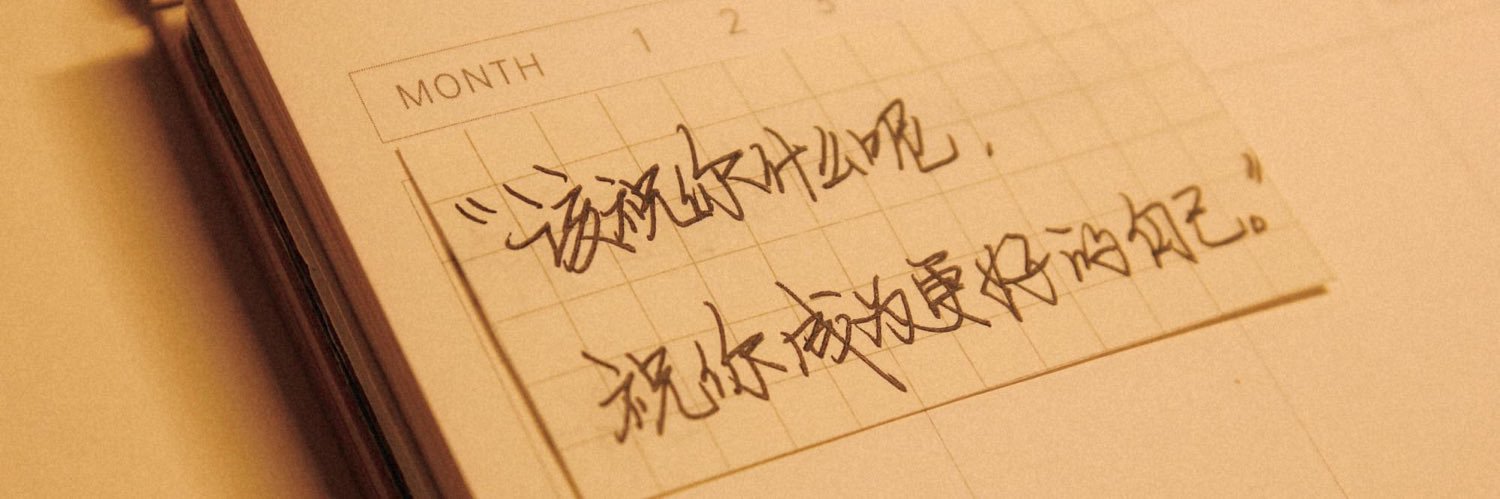 MONTH 1 2 3
“该祝你什么呢.
祝你成为更好的自己。”